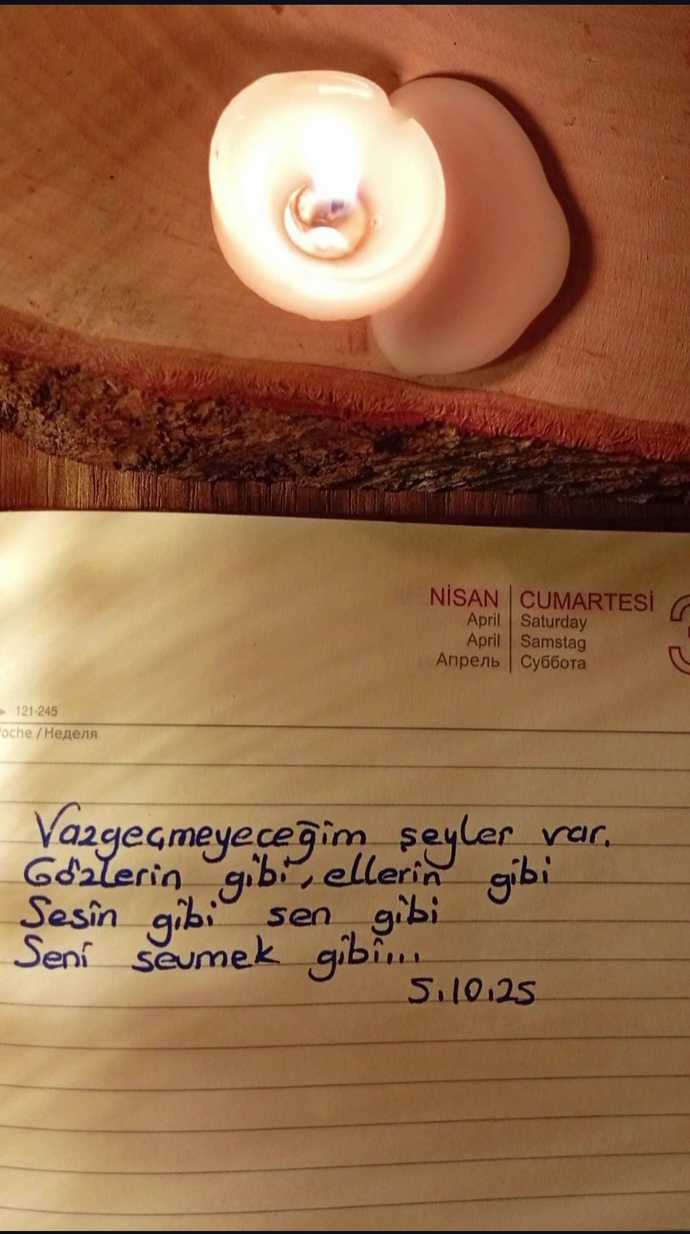 NİSAN | CUMARTESİ
April | Saturday
April | Samstag
Апрель | Суббота
121-245
oche / Неделя
Vazgeçmeyeceğim şeyler var.
Gözlerin gibi, ellerin gibi
Sesin gibi sen gibi
Seni sevmek gibi...
5.10.25